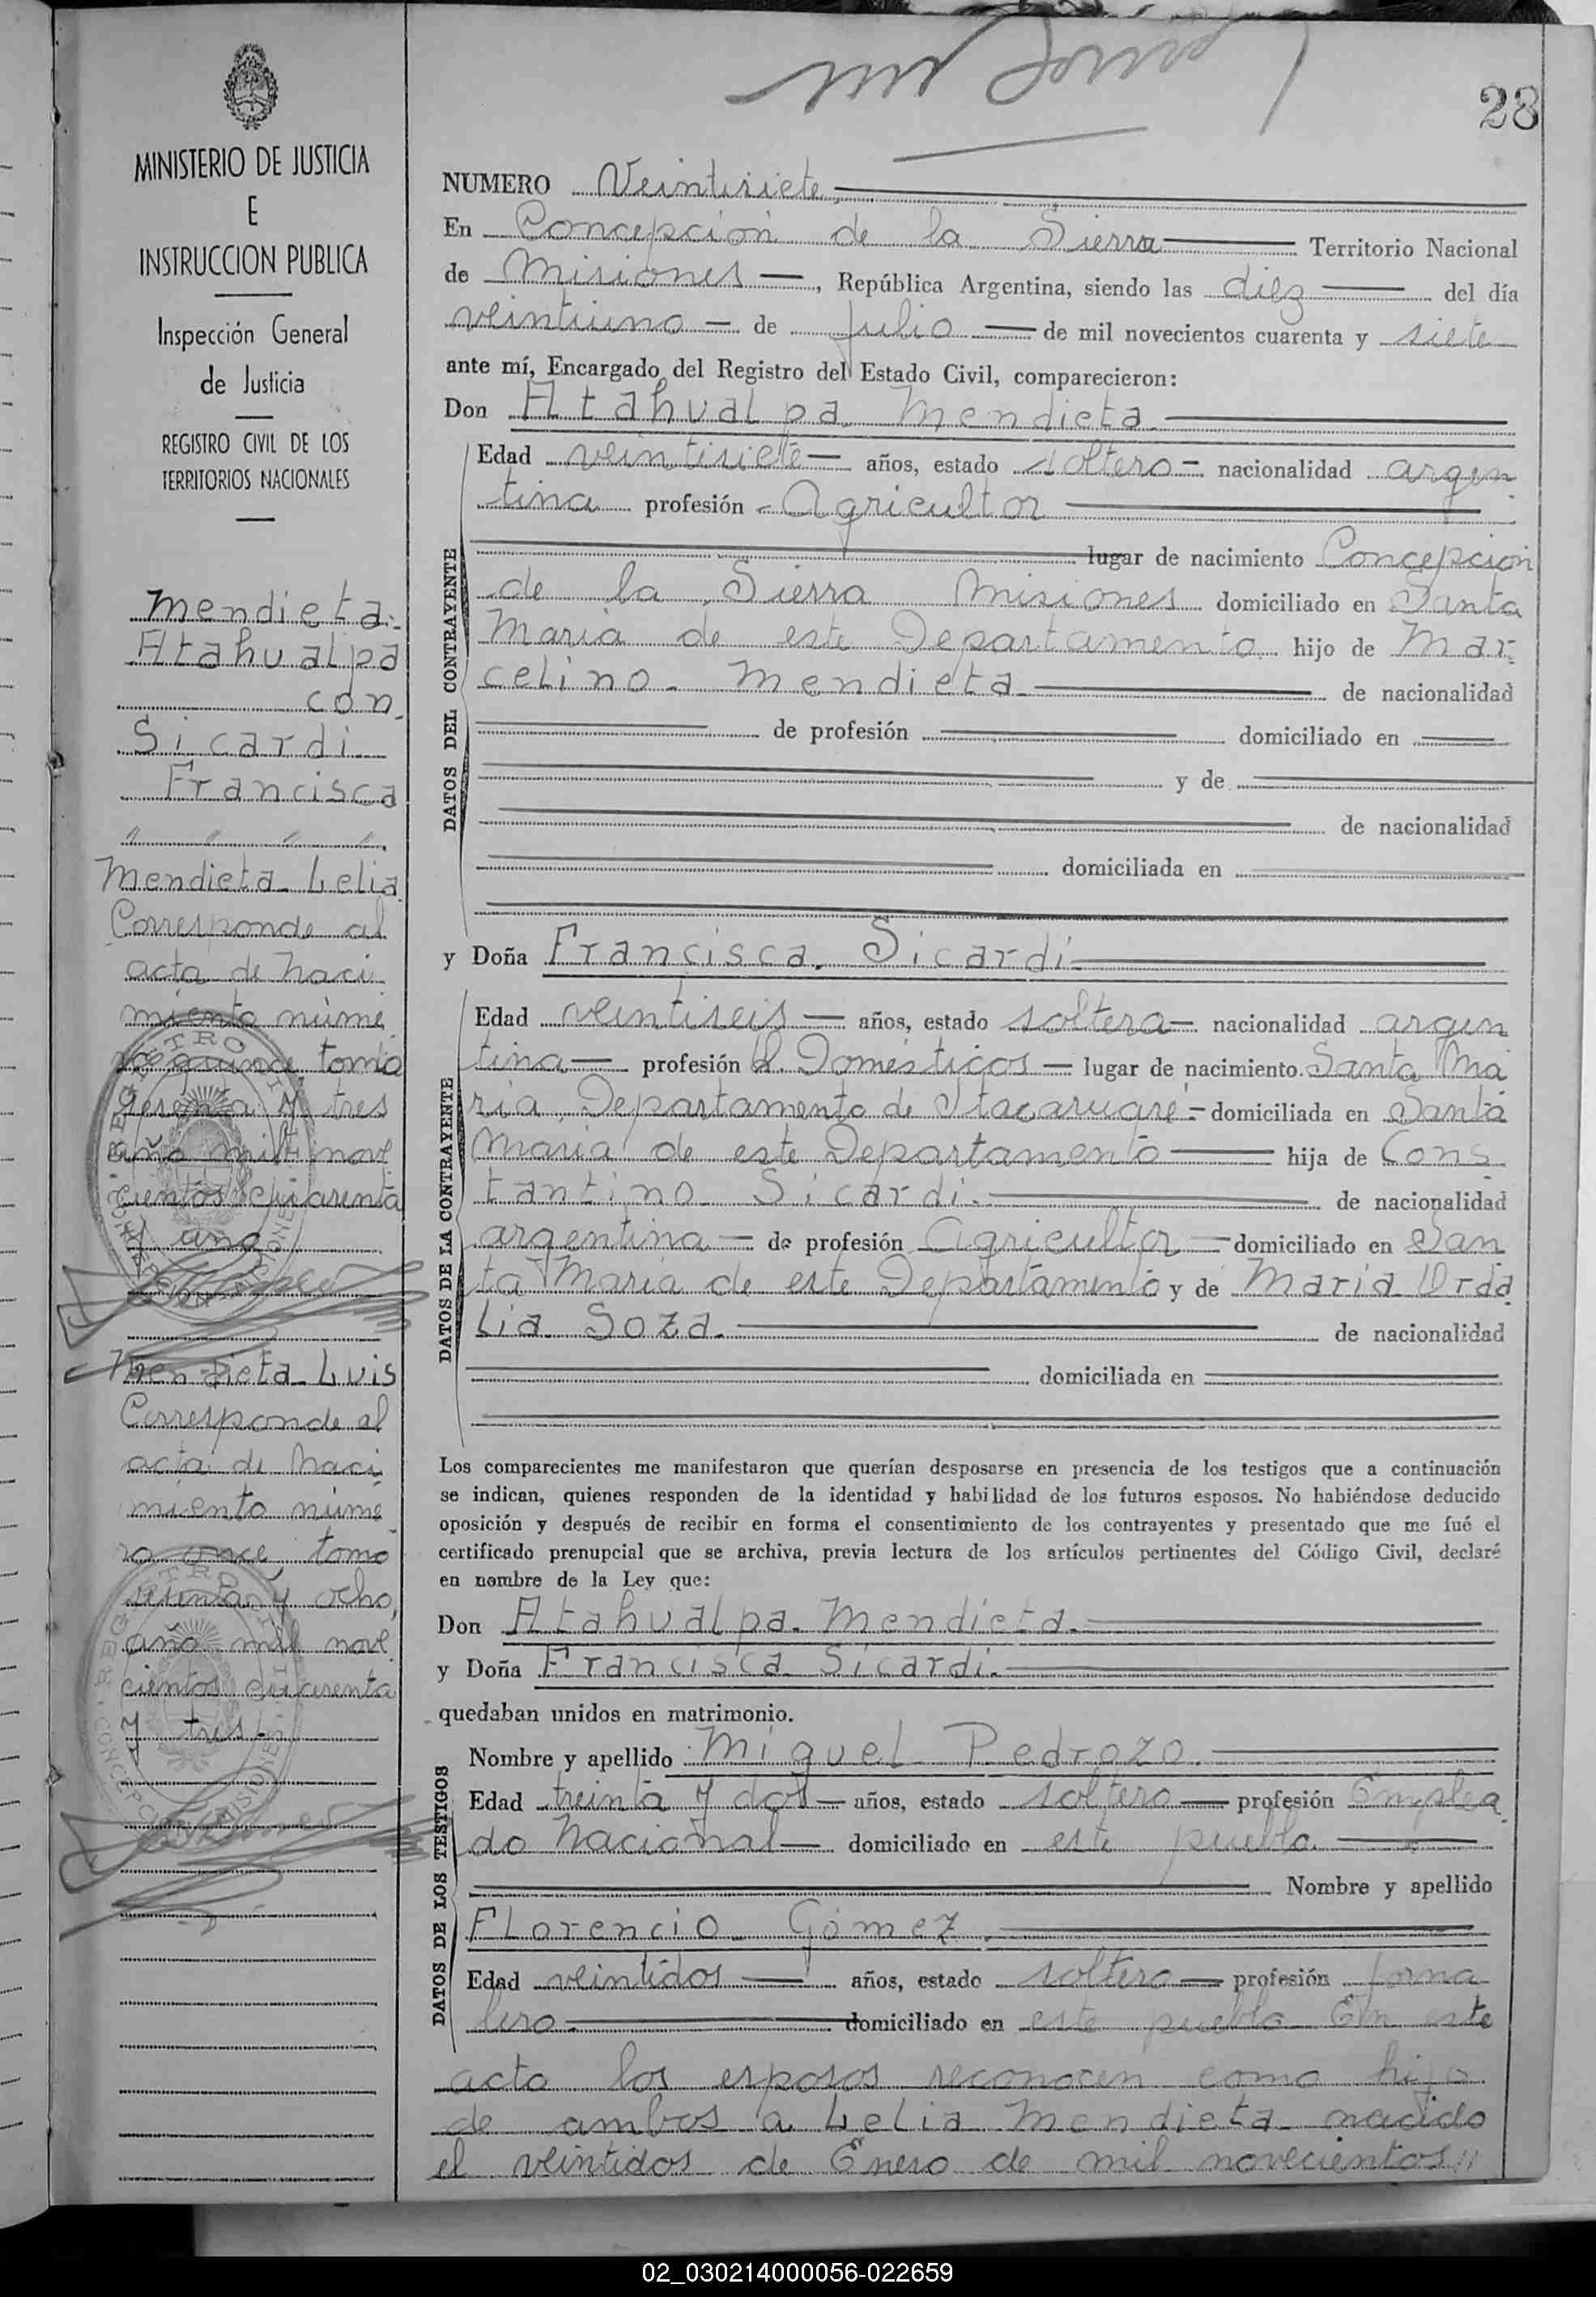 28
MINISTERIO DE JUSTICIA
E
INSTRUCCION PUBLICA
Inspección General
de Justicia
REGISTRO CIVIL DE LOS
TERRITORIOS NACIONALES
Mendieta
Atahualpa
con
Sicardi
Francisca
Mendieta Lelia
Corresponde al
acta de naci
miento núme
ro quince, tomo
y tres
año mil nove
cientos cuarenta
y uno
Mendieta Luis
Corresponde al
acta de naci
miento núme
ro once tomo
sesenta y ocho,
año mil nove
cientos cuarenta
y tres.
NUMERO Veintisiete
En Concepción de la Sierra Territorio Nacional
de Misiones, República Argentina, siendo las diez del día
veintiuno de julio de mil novecientos cuarenta y siete
ante mí, Encargado del Registro del Estado Civil, comparecieron:
Don Atahualpa Mendieta
DATOS DEL CONTRAYENTE
Edad veintisiete años, estado soltero nacionalidad argen
tina profesión Agricultor
lugar de nacimiento Concepción
de la Sierra Misiones domiciliado en Santa
María de este Departamento hijo de Mar
celino Mendieta de nacionalidad
de profesión domiciliado en
y de
de nacionalidad
domiciliada en
y Doña Francisca Sicardi
DATOS DE LA CONTRAYENTE
Edad veintiseis años, estado soltera nacionalidad argen
tina profesión Q. Domésticos lugar de nacimiento Santa Ma
ria Departamento de Itacaruaré domiciliada en Santa
María de este Departamento hija de Cons
tantino Sicardi de nacionalidad
argentina de profesión Agricultor domiciliado en San
ta María de este Departamento y de María Orda
lia Soza de nacionalidad
domiciliada en
Los comparecientes me manifestaron que querían desposarse en presencia de los testigos que a continuación
se indican, quienes responden de la identidad y habilidad de los futuros esposos. No habiéndose deducido
oposición y después de recibir en forma el consentimiento de los contrayentes y presentado que me fué el
certificado prenupcial que se archiva, previa lectura de los artículos pertinentes del Código Civil, declaré
en nombre de la Ley que:
Don Atahualpa Mendieta
y Doña Francisca Sicardi
quedaban unidos en matrimonio.
DATOS DE LOS TESTIGOS
Nombre y apellido Miguel Pedrozo
Edad treinta y dos años, estado soltero profesión Emplea
do Nacional domiciliado en este pueblo
Nombre y apellido
Florencio Gómez
Edad veintidos años, estado soltero profesión jorna
lero domiciliado en este pueblo En este
acto los esposos reconocen como hijo
de ambos a Lelia Mendieta nacido
el veintidos de Enero de mil novecientos //
02_030214000056-022659